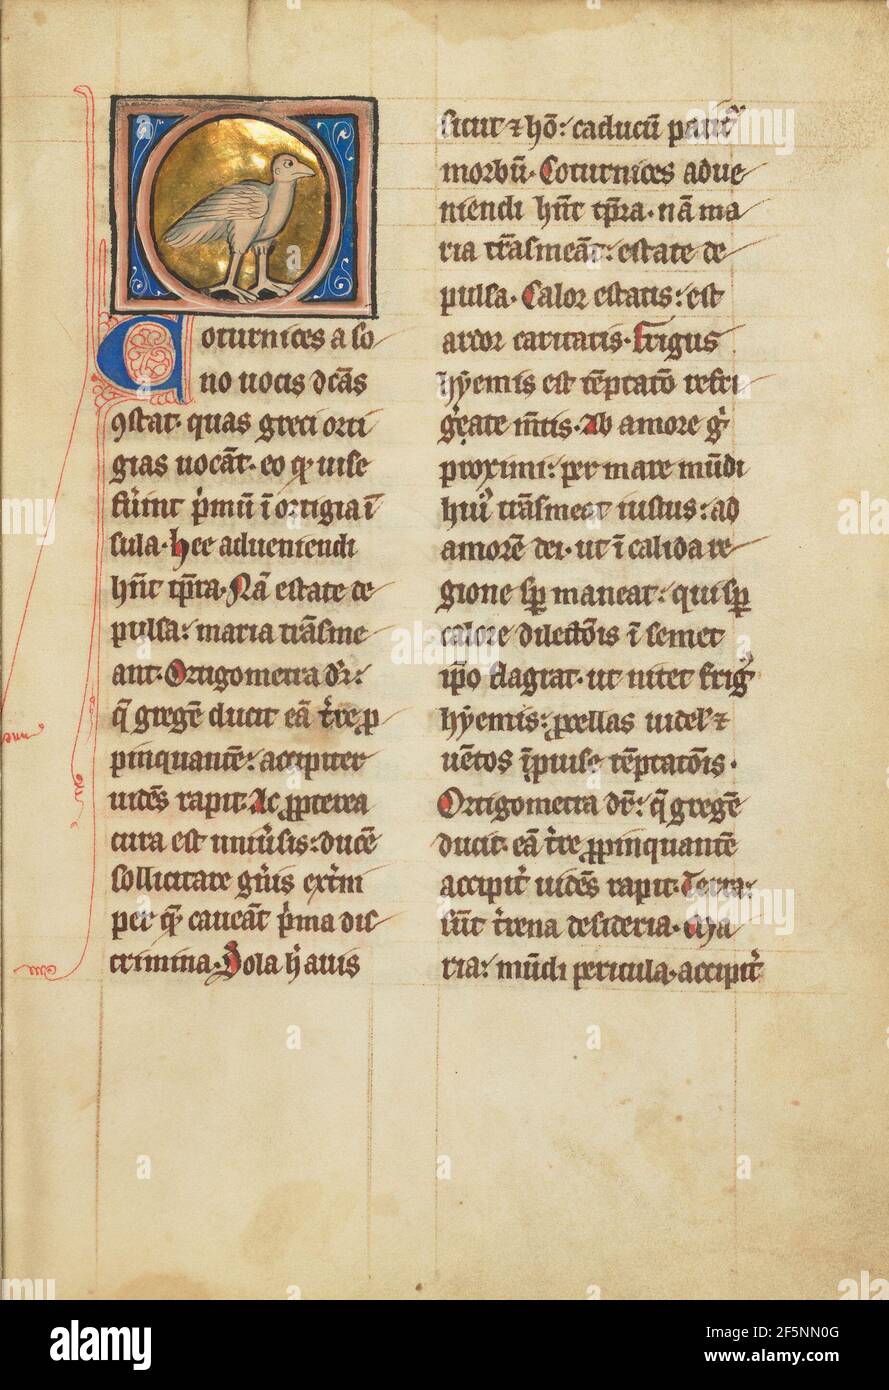 Coturnices a so
no uocis dc̄as
ꝯstat· quas greci orti
gias uocāt· eo ꝙ uise
fu̾int p̾mū ī ortigia ī
sula· hee adueniendi
hn̄t tp̄ra· Nā estate de
pulsa: maria trāsme
ant· Ortigometra dr̄:
q̄ gregē ducit eā t̾re ꝓ
pinquantē: accipiter
uidēs rapit· Ac ꝓpterea
cura est uniu̾sis: ducē
sollicitare gn̾is ext̾ni
per quē caueāt p̾ma dis
crimina· Sola h̾ auis
sicut ⁊ hō: caducū patit᷑
morbū· Coturnices adue
niendi hn̄t tp̄ra· nā ma
ria trāsmeāt: estate de
pulsa· Calor estatis: est
ardor caritatis· Frigus
hyemis est tēptatō refri
g̾eate m̄tis· Ab amore g̾
proximi: per mare mūdi
huiꝰ trāsmeat iustus: ad
amorē dei· ut ī calida re
gione sꝑ maneat: qui sꝑ
calore dilectōis ī semet
ip̄o flagrat· ut uitet frigꝰ
hyemis: ꝓcellas uidel̾ ⁊
uētos īpuise tēptatōis·
Ortigometra dr̄: q̄ gregē
ducit· eā t̾re ꝓpinquantē
accipit̾ uidēs rapit· Terra:
sūt t̾rena desideria· Ma
ria: mūdi pericula· accipit̾
alamy
a
alamy
Image ID: 2F5NN0G
www.alamy.com